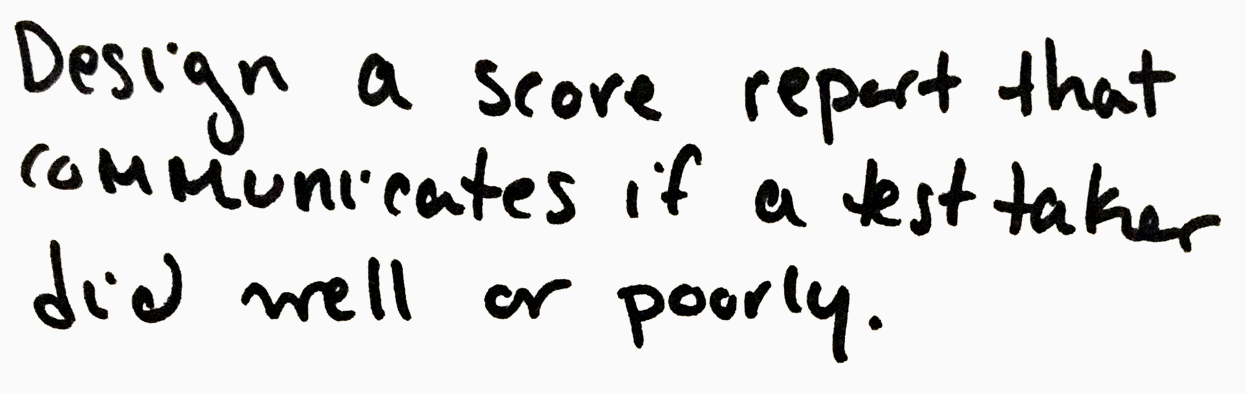 Design a score report that
communicates if a test taker
did well or poorly.